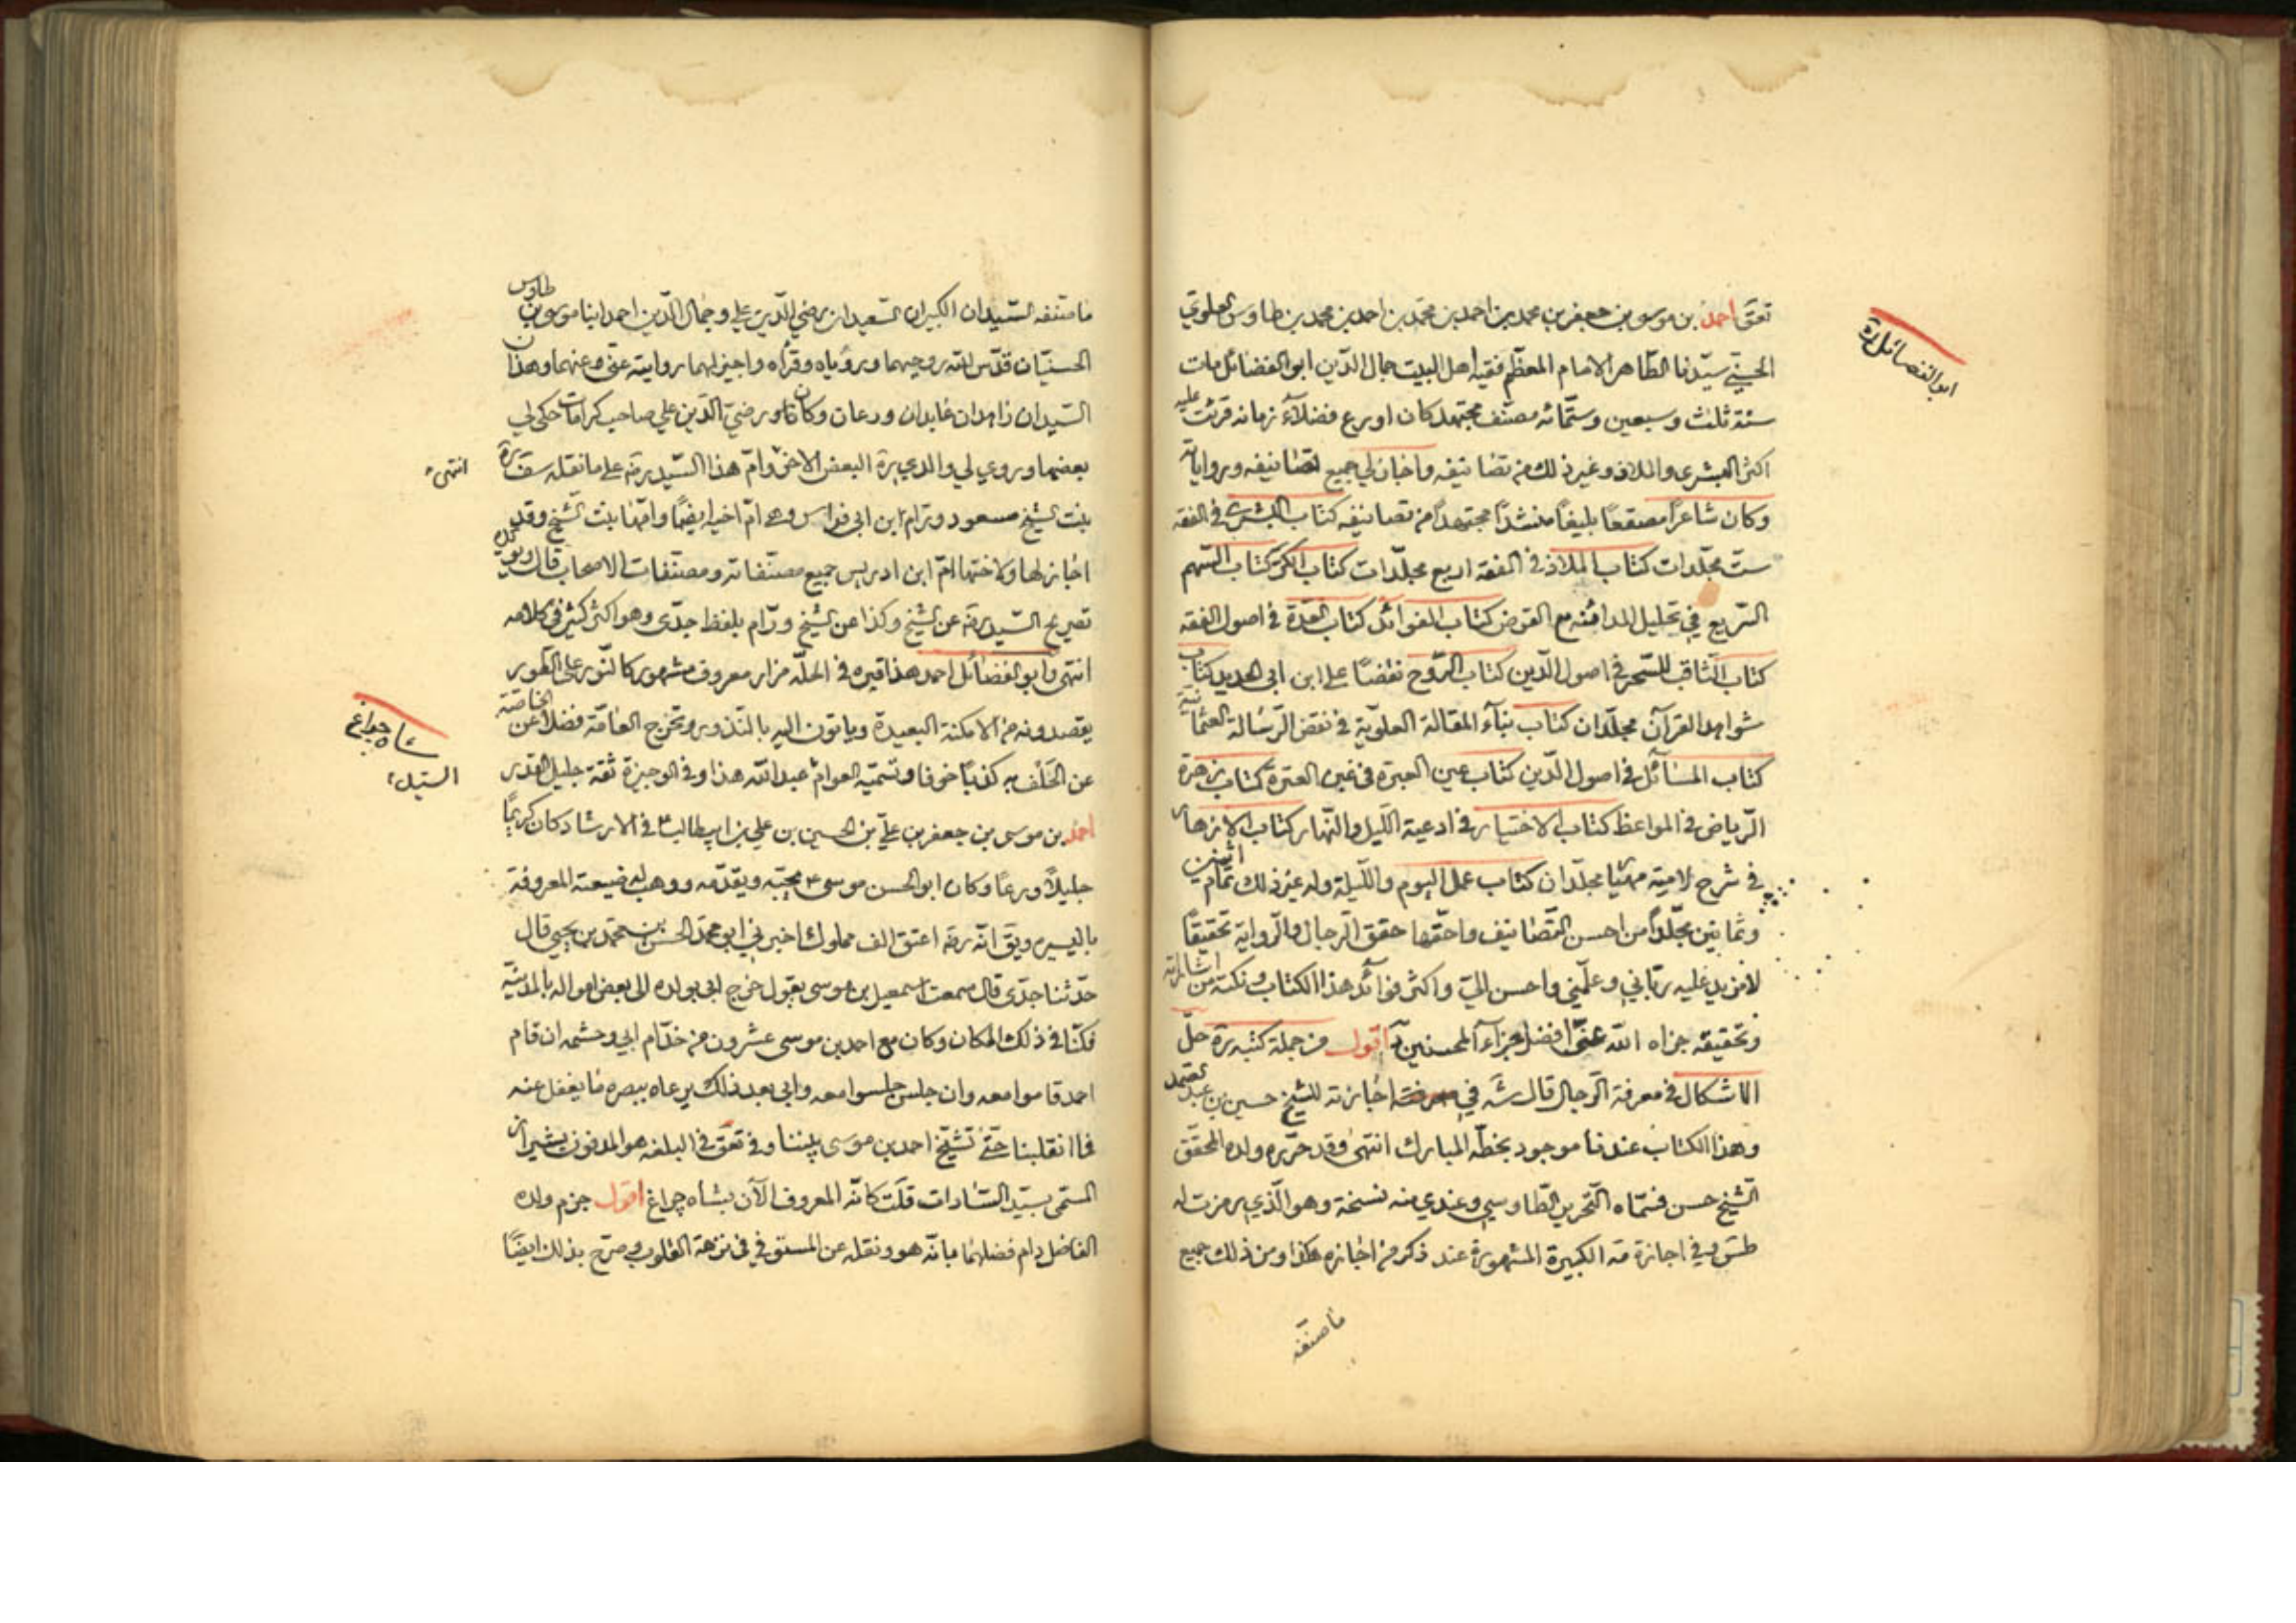 ابو الفضائل ره
تعق احمد بن موسى بن جعفر بن محمد بن احمد بن محمد بن احمد بن محمد بن طاوس العلوي
الحسني سيّدنا الطاهر الامام المعظّم فقيه اهل البيت جمال الدّين ابو الفضائل مات
سنة ثلث وسبعين وستمّائه مصنّف مجتهد كان اورع فضلآء زمانه قرئت عليه
اكثر البشرى والملاذ وغير ذلك من تصانيفه واجاز لي جميع تصانيفه ورواياته
وكان شاعراً مصقعاً بليغاً منشئاً مجتهداً من تصانيفه كتاب البشرى في الفقه
ستّ مجلّدات كتاب الملاذ في الفقه اربع مجلّدات كتاب الكرّ كتاب السّهم
السّريع في تحليل المداينه مع القرض كتاب الفوائد كتاب العدّة في اصول الفقه
كتاب الثّاقب المسخر في اصول الدّين كتاب الرّوح نقضاً على ابن ابي الحديد كتاب
شواهد القرآن مجلّدان كتاب بنآء المقالة العلويّة في نقض الرّسالة العثمانيّة
كتاب المسائل في اصول الدّين كتاب عين العبرة في غبن العترة كتاب زهرة
الرّياض في المواعظ كتاب الاختيار في ادعية اللّيل والنّهار كتاب الازهار
في شرح لاميّة مهيار مجلّدان كتاب عمل اليوم واللّيلة وله غير ذلك تمام اثنين
وثمانين مجلّداً من احسن التّصانيف واحقّها حقّق الرّجال والرّواية تحقيقاً
لا مزيد عليه ربّاني وعلّمني واحسن اليّ واكثر فوائد هذا الكتاب ونكته من اشاراته
وتحقيقه جزاه الله عنّي افضل جزآء المحسنين اقول من جملة كتبه ره حلّ
الاشكال في معرفة الرّجال قال شه في اجازته للشّيخ حسين بن عبد الصمد
وهذا الكتاب عندنا موجود بخطّه المبارك انتهى وقد حرّره ولده المحقّق
الشّيخ حسن فسمّاه التّحرير الطّاوسي وعندي منه نسخة وهو الّذي رمزت له
طس وفي اجازته الكبيرة المشهورة عند ذكر من اجازه هكذا ومن ذلك جميع
ما صنفه
ما صنّفه السّيدان الكبيران السّعيدان رضي الدّين علي وجمال الدّين احمد ابنا موسى بن طاوس
الحسنيّان قدّس الله روحيهما ورؤياه وقرآه واجيز لهما روايته عنّي وعنهما وهذان
السّيدان زاهدان عابدان ورعان وكان رضيّ الدّين علي صاحب كرامات حكى لي
بعضها وروى لي والدي ره البعض الاخر وامّ هذا السّيد رضه على ما نقله سف ره
انتهى
بنت الشيخ مسعود ورّام ابن ابي فراس وهى امّ اخيه ايضاً وامّها بنت الشّيخ وقد
اجاز لها ولاختها امّ ابن ادريس جميع مصنّفاته ومصنّفات الاصحاب قال ويؤيّده
تصريح السّيد رضه عن الشّيخ وكذا عن الشّيخ ورّام بلفظ جدّى وهو اكثر كثير في كلامه
انتهى وابو الفضائل احمد هذا قبره في الحلّه مزار معروف مشهور كالنّور على الطّور
يقصدونه من الامكنة البعيدة وياتون اليه بالنّذور وتخرج العامّة فضلاً عن الخاصّة
شاه چراغ
عن الحلف به كذباً خوفا وتسمّيه العوام عبد الله هذا وفي الوجيزة ثقة جليل القدر
السّيد
احمد بن موسى بن جعفر بن عليّ بن الحسين بن علي بن ابيطالب ع في الارشاد كان كريماً
جليلاً ورعاً وكان ابو الحسن موسى ع يحبّه ويقدّمه ووهب له ضيعته المعروفة
باليسيره ويق انّه رضه اعتق الف مملوك اخبرني ابو محمّد الحسن بن محمّد بن يحيى قال
حدّثنا جدّى قال سمعت اسمعيل بن موسى يقول خرج ابي بولده الى بعض امواله بالمدينة
فكنّا في ذلك المكان وكان مع احمد بن موسى عشرون من خدّام ابي وحشمه ان قام
احمد قاموا معه وان جلس جلسوا معه وابي بعد ذلك يرعاه ببصره ما يغفل عنه
فما انقلبنا حتّى تشيّخ احمد بن موسى بيننا وفي تعق في البلغه هو المدفون بشيراز
المسمّى بسيّد السّادات قلت كانّه المعروف الآن بشاه چراغ اقول جزم ولده
الفاضل دام فضلهما بانّه هو ونقله عن المستوفي في نزهة القلوب وصرّح بذلك ايضاً